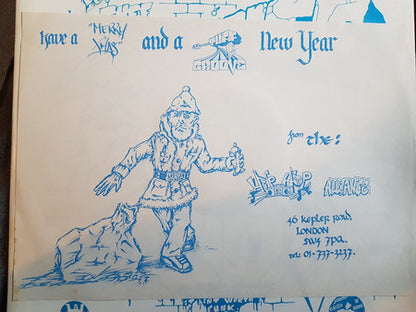 have a "MERRY XMAS" and a GROOVE New Year
from the:
HIP HOP ALLIANCE
46 Kepler Road,
LONDON
SW4 7PA.
tel: 01-737-3237.